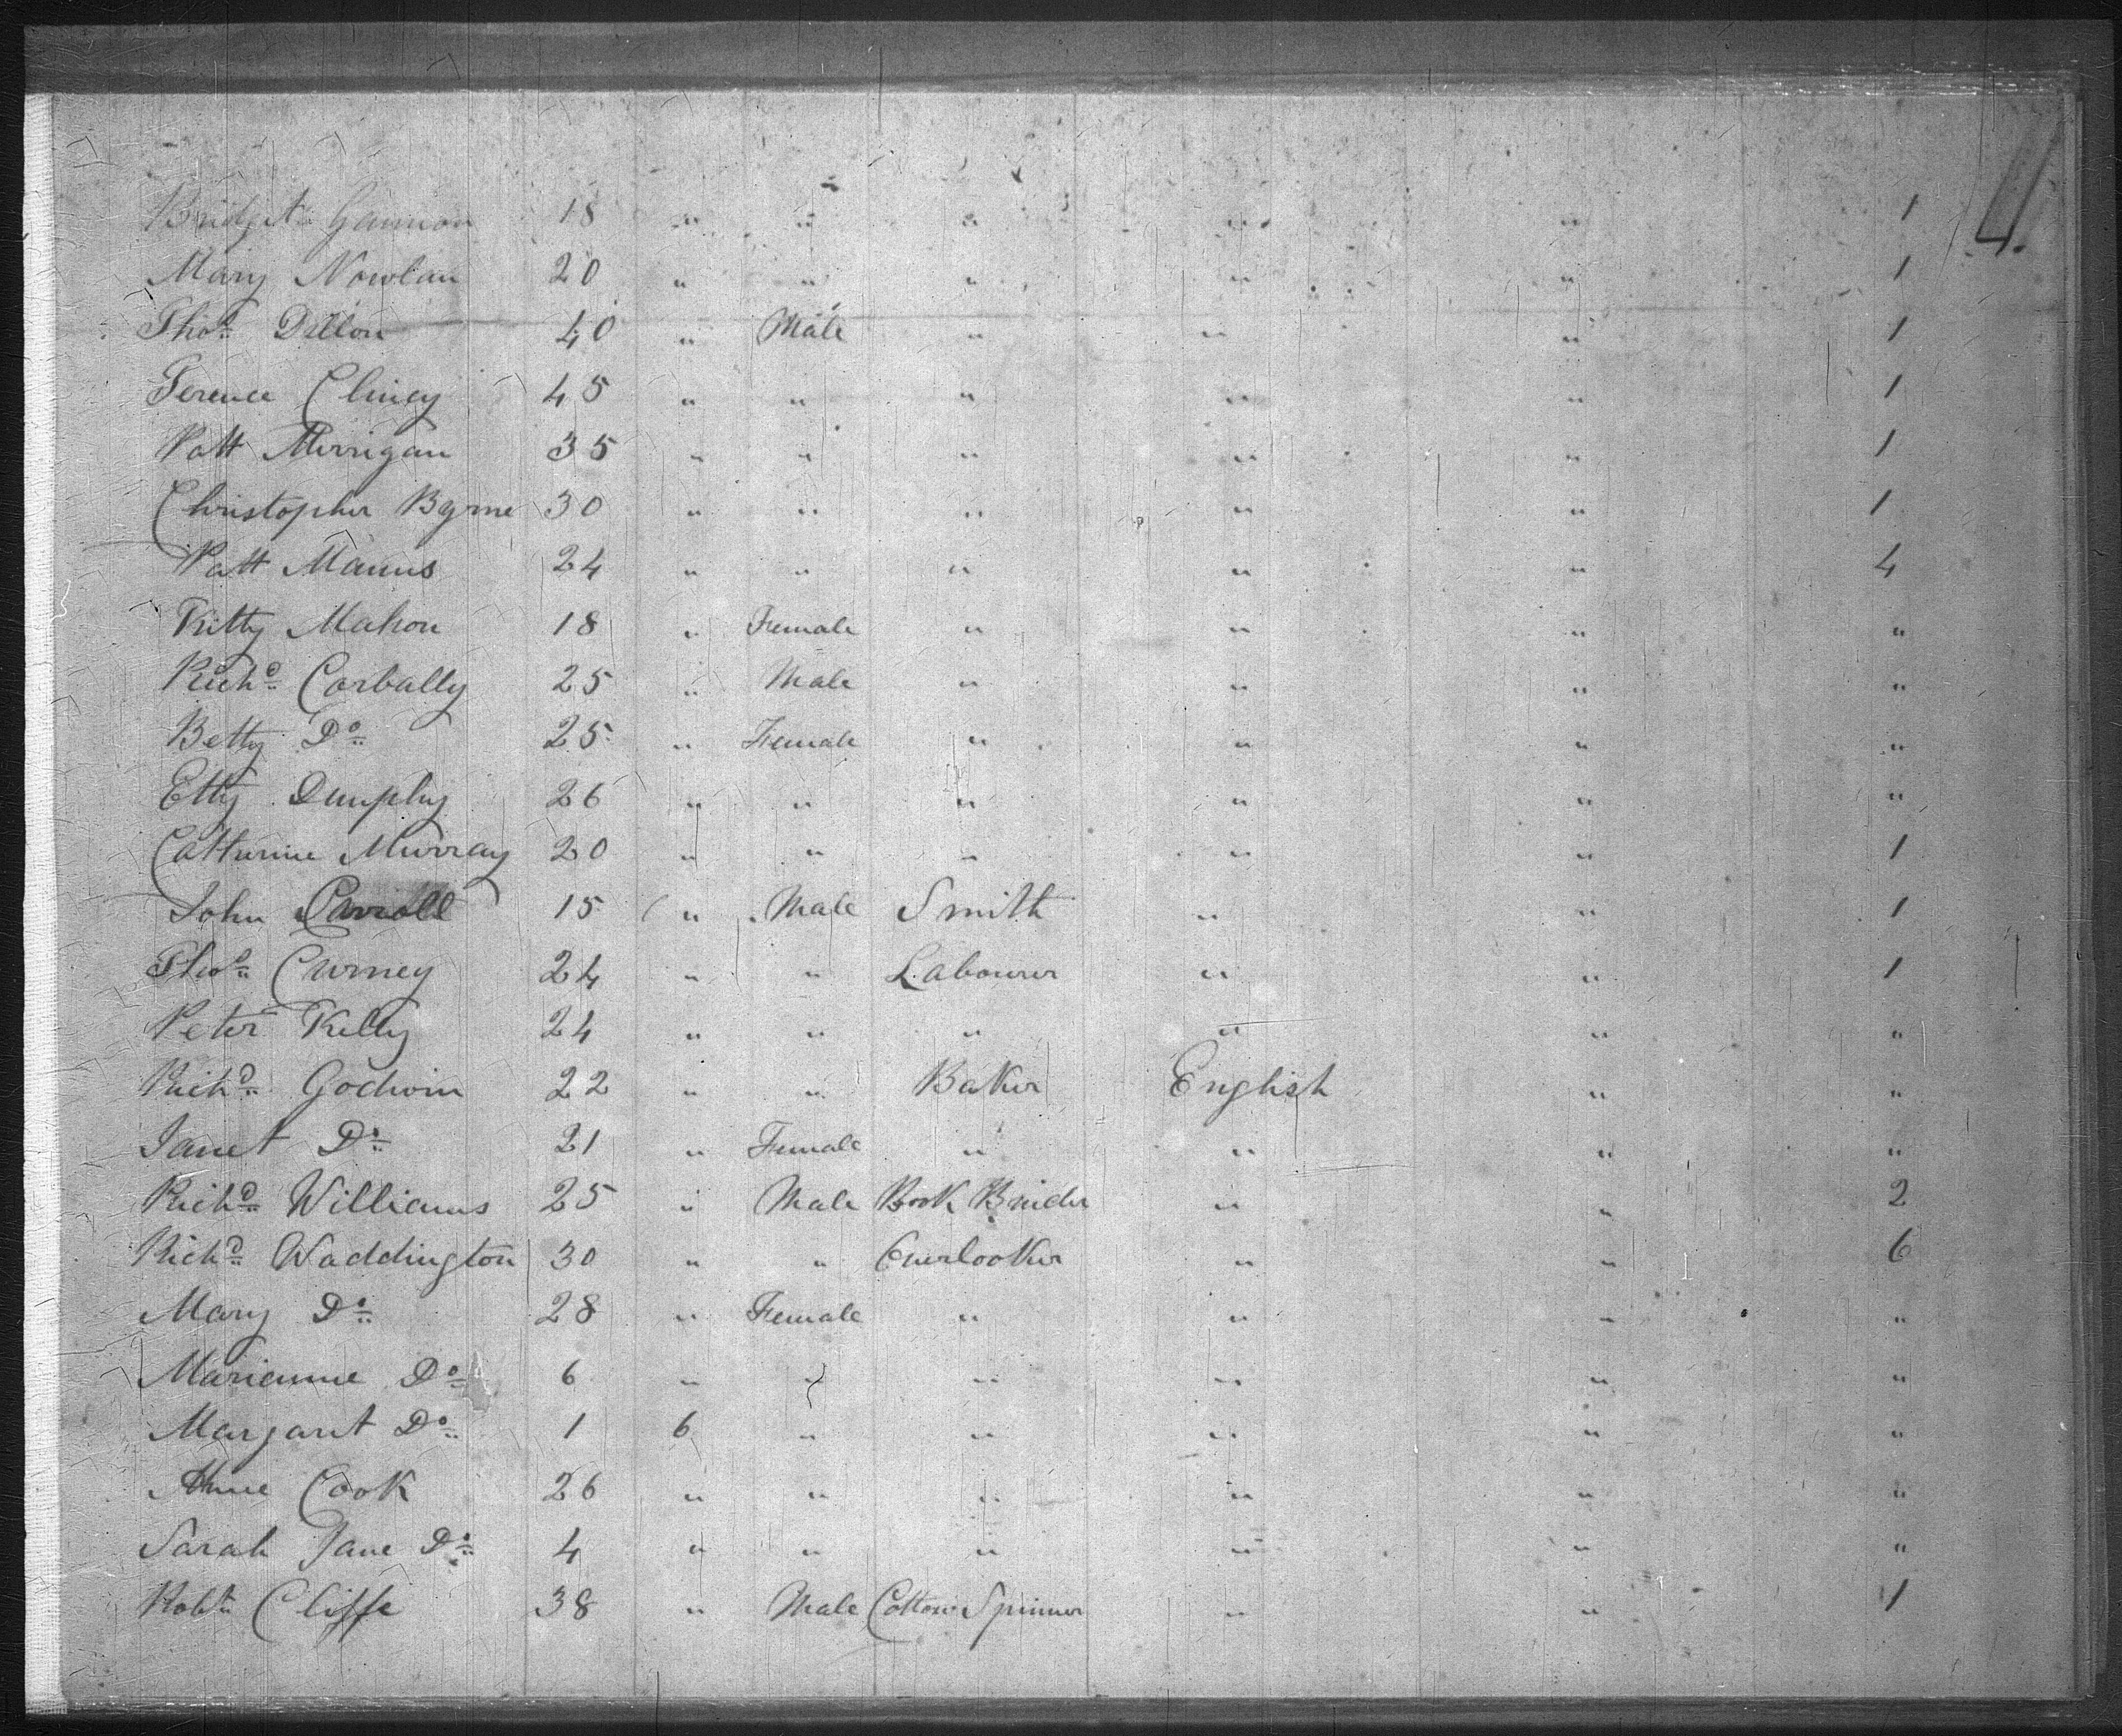 4.
Bridget Gannon 18 " " " " " 1
Mary Nowlan 20 " " " " " 1
Thos. Dillon 40 " Male " " " 1
Terence Cliney 45 " " " " " 1
Patt Merrigan 35 " " " " " 1
Christopher Byrne 30 " " " " " 1
Patt Manns 24 " " " " " 4
Kitty Mahon 18 " Female " " " "
Richd. Corbally 25 " Male " " " "
Betty Do. 25 " Female " " " "
Etty Dunphy 26 " " " " " "
Catherine Murray 20 " " " " " 1
John Carroll 15 " Male Smith " " 1
Thos. Curney 24 " " Labourer " " 1
Peter Kelly 24 " " " " " "
Richd. Godwin 22 " " Baker English " "
Janet Do. 21 " Female " " " "
Richd. Williams 25 " Male Book Binder " " 2
Richd. Waddington 30 " " Overlooker " " 6
Mary Do. 28 " Female " " " "
Marianne Do. 6 " " " " " "
Margaret Do. 1 6 " " " " "
Anne Cook 26 " " " " " "
Sarah Jane Do. 4 " " " " " "
Robt. Cliffe 38 " Male Cotton Spinner " " 1